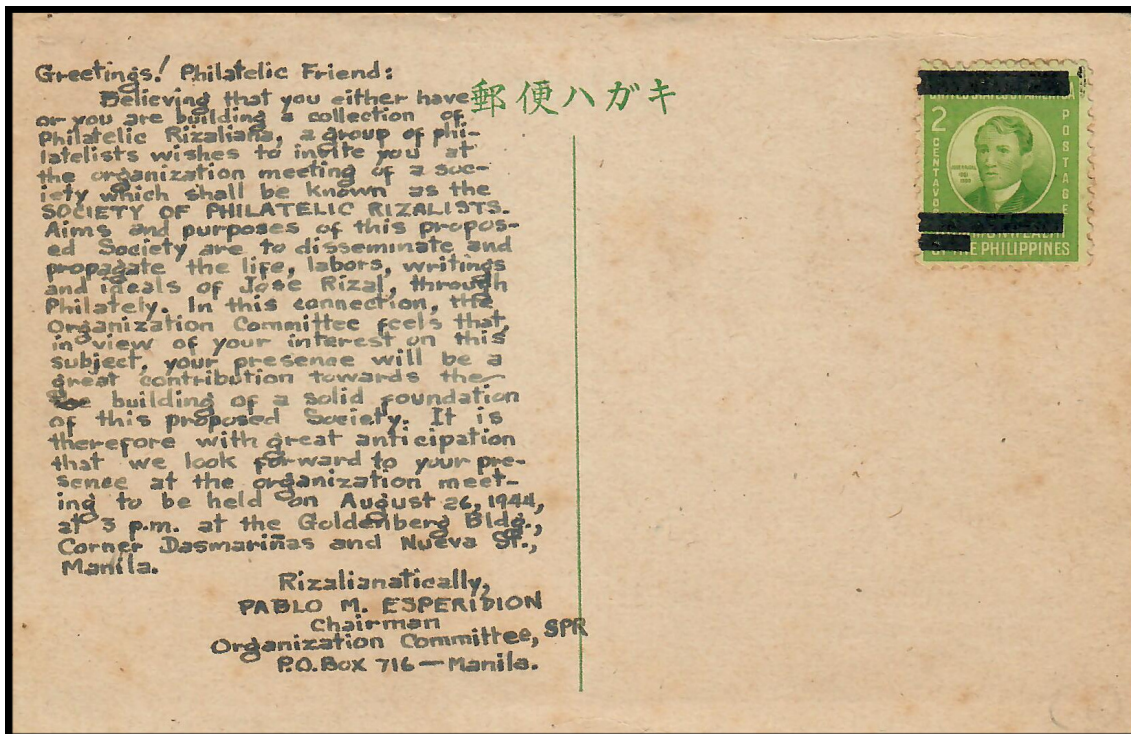 Greetings! Philatelic Friend:
Believing that you either have
or you are building a collection of
Philatelic Rizaliana, a group of phi-
latelists wishes to invite you at
the organization meeting of a soc-
iety which shall be known as the
SOCIETY OF PHILATELIC RIZALISTS.
Aims and purposes of this propos-
ed Society are to disseminate and
propagate the life, labors, writings
and ideals of Jose Rizal, through
Philately. In this connection, the
Organization Committee feels that,
in view of your interest on this
subject, your presence will be a
great contribution towards the
building of a solid foundation
of this proposed Society. It is
therefore with great anticipation
that we look forward to your pre-
sence at the organization meet-
ing to be held on August 26, 1944,
at 3 p.m. at the Goldenberg Bldg.,
Corner Dasmariñas and Nueva St.,
Manila.
Rizalianatically,
PABLO M. ESPERIDION
Chairman
Organization Committee, SPR
P.O. Box 716 — Manila.
郵便ハガキ
UNITED STATES OF AMERICA
2
CENTAVOS
POSTAGE
OF THE PHILIPPINES